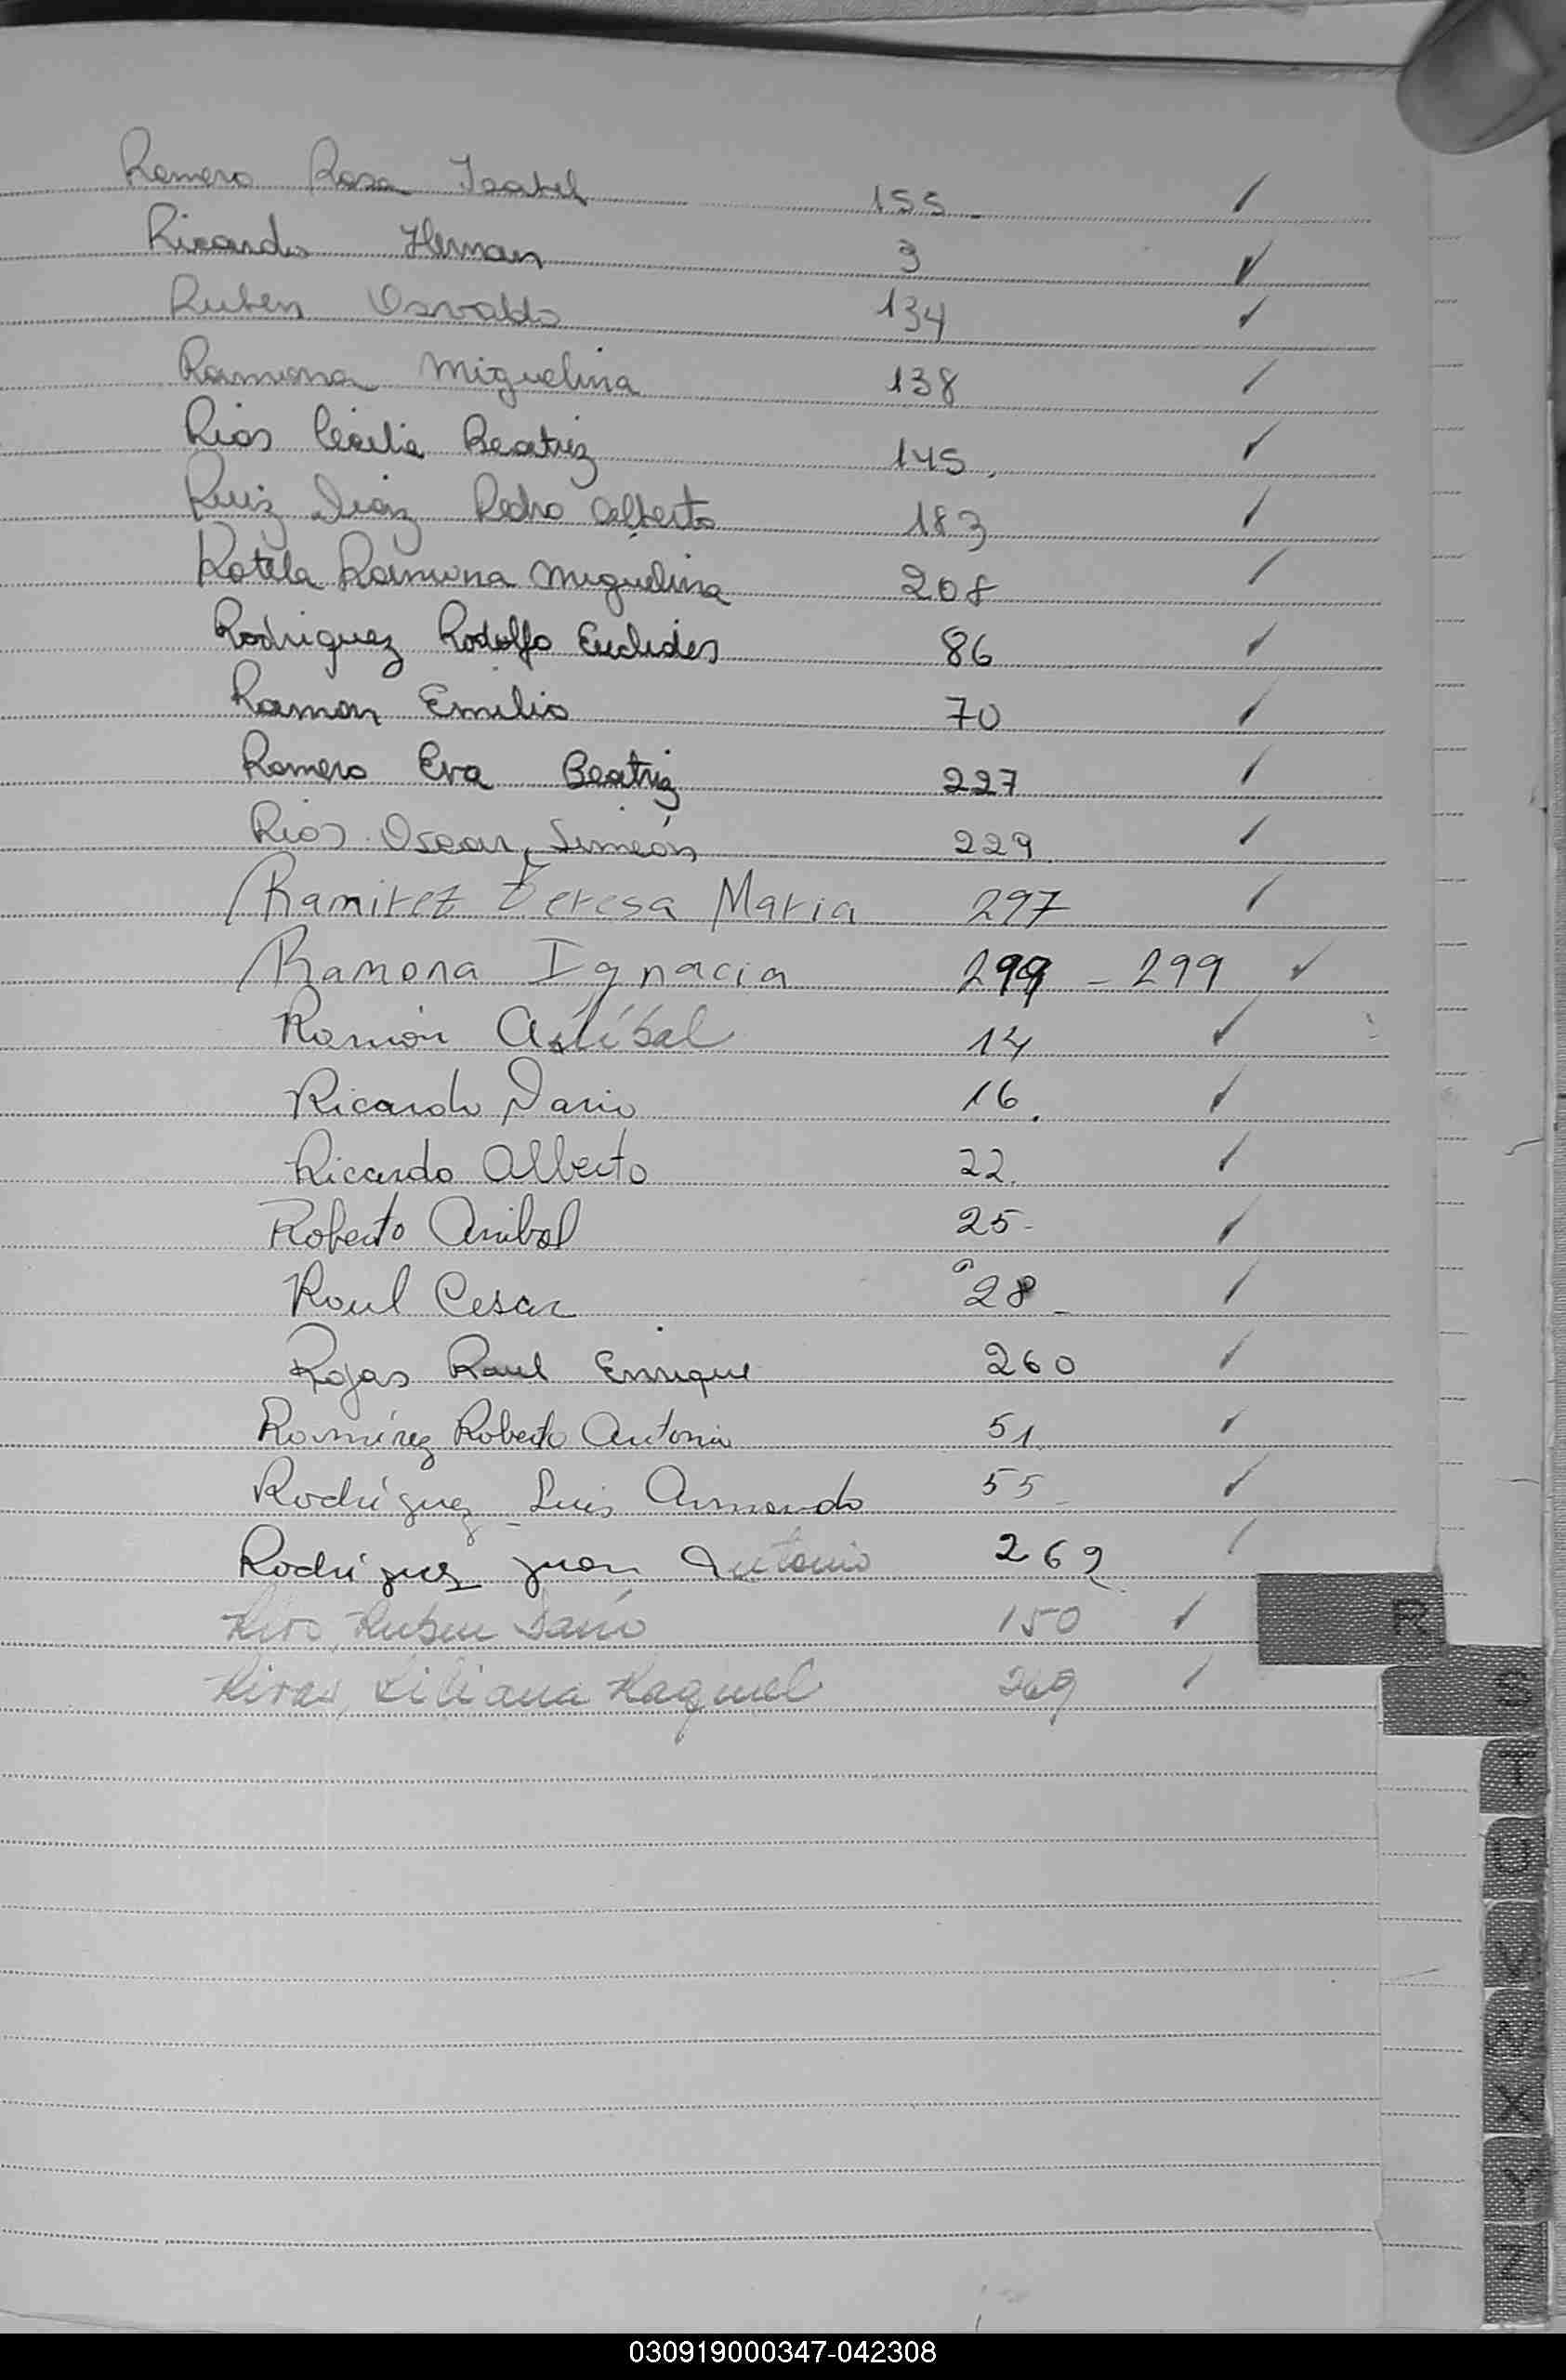 Romero Rosa Isabel 155 - ✓
Ricardo Hernan 3 ✓
Ruben Osvaldo 134 ✓
Ramona Miguelina 138 ✓
Rios Cecilia Beatriz 145. ✓
Ruiz Diaz Pedro Alberto 183 ✓
Rotela Ramona Miguelina 208 ✓
Rodriguez Rodolfo Euclides 86 ✓
Ramon Emilio 70 ✓
Romero Eva Beatriz 227 ✓
Rios Oscar Simeón 229 ✓
Ramirez Teresa Maria 297 ✓
Ramona Ignacia 299 - 299 ✓
Ramón Aníbal 14 ✓
Ricardo Dario 16. ✓
Ricardo Alberto 22. ✓
Roberto Anibal 25- ✓
Raul Cesar 28 - ✓
Rojas Raul Enrique 260 ✓
Ramírez Roberto Antonio 51 ✓
Rodríguez Luis Armando 55 - ✓
Rodríguez Juan Antonio 262 ✓
Ruben Darío 150 ✓
Rivas, Liliana Raquel 269 ✓
R
S
T
U
V
W
X
Y
Z
030919000347-042308